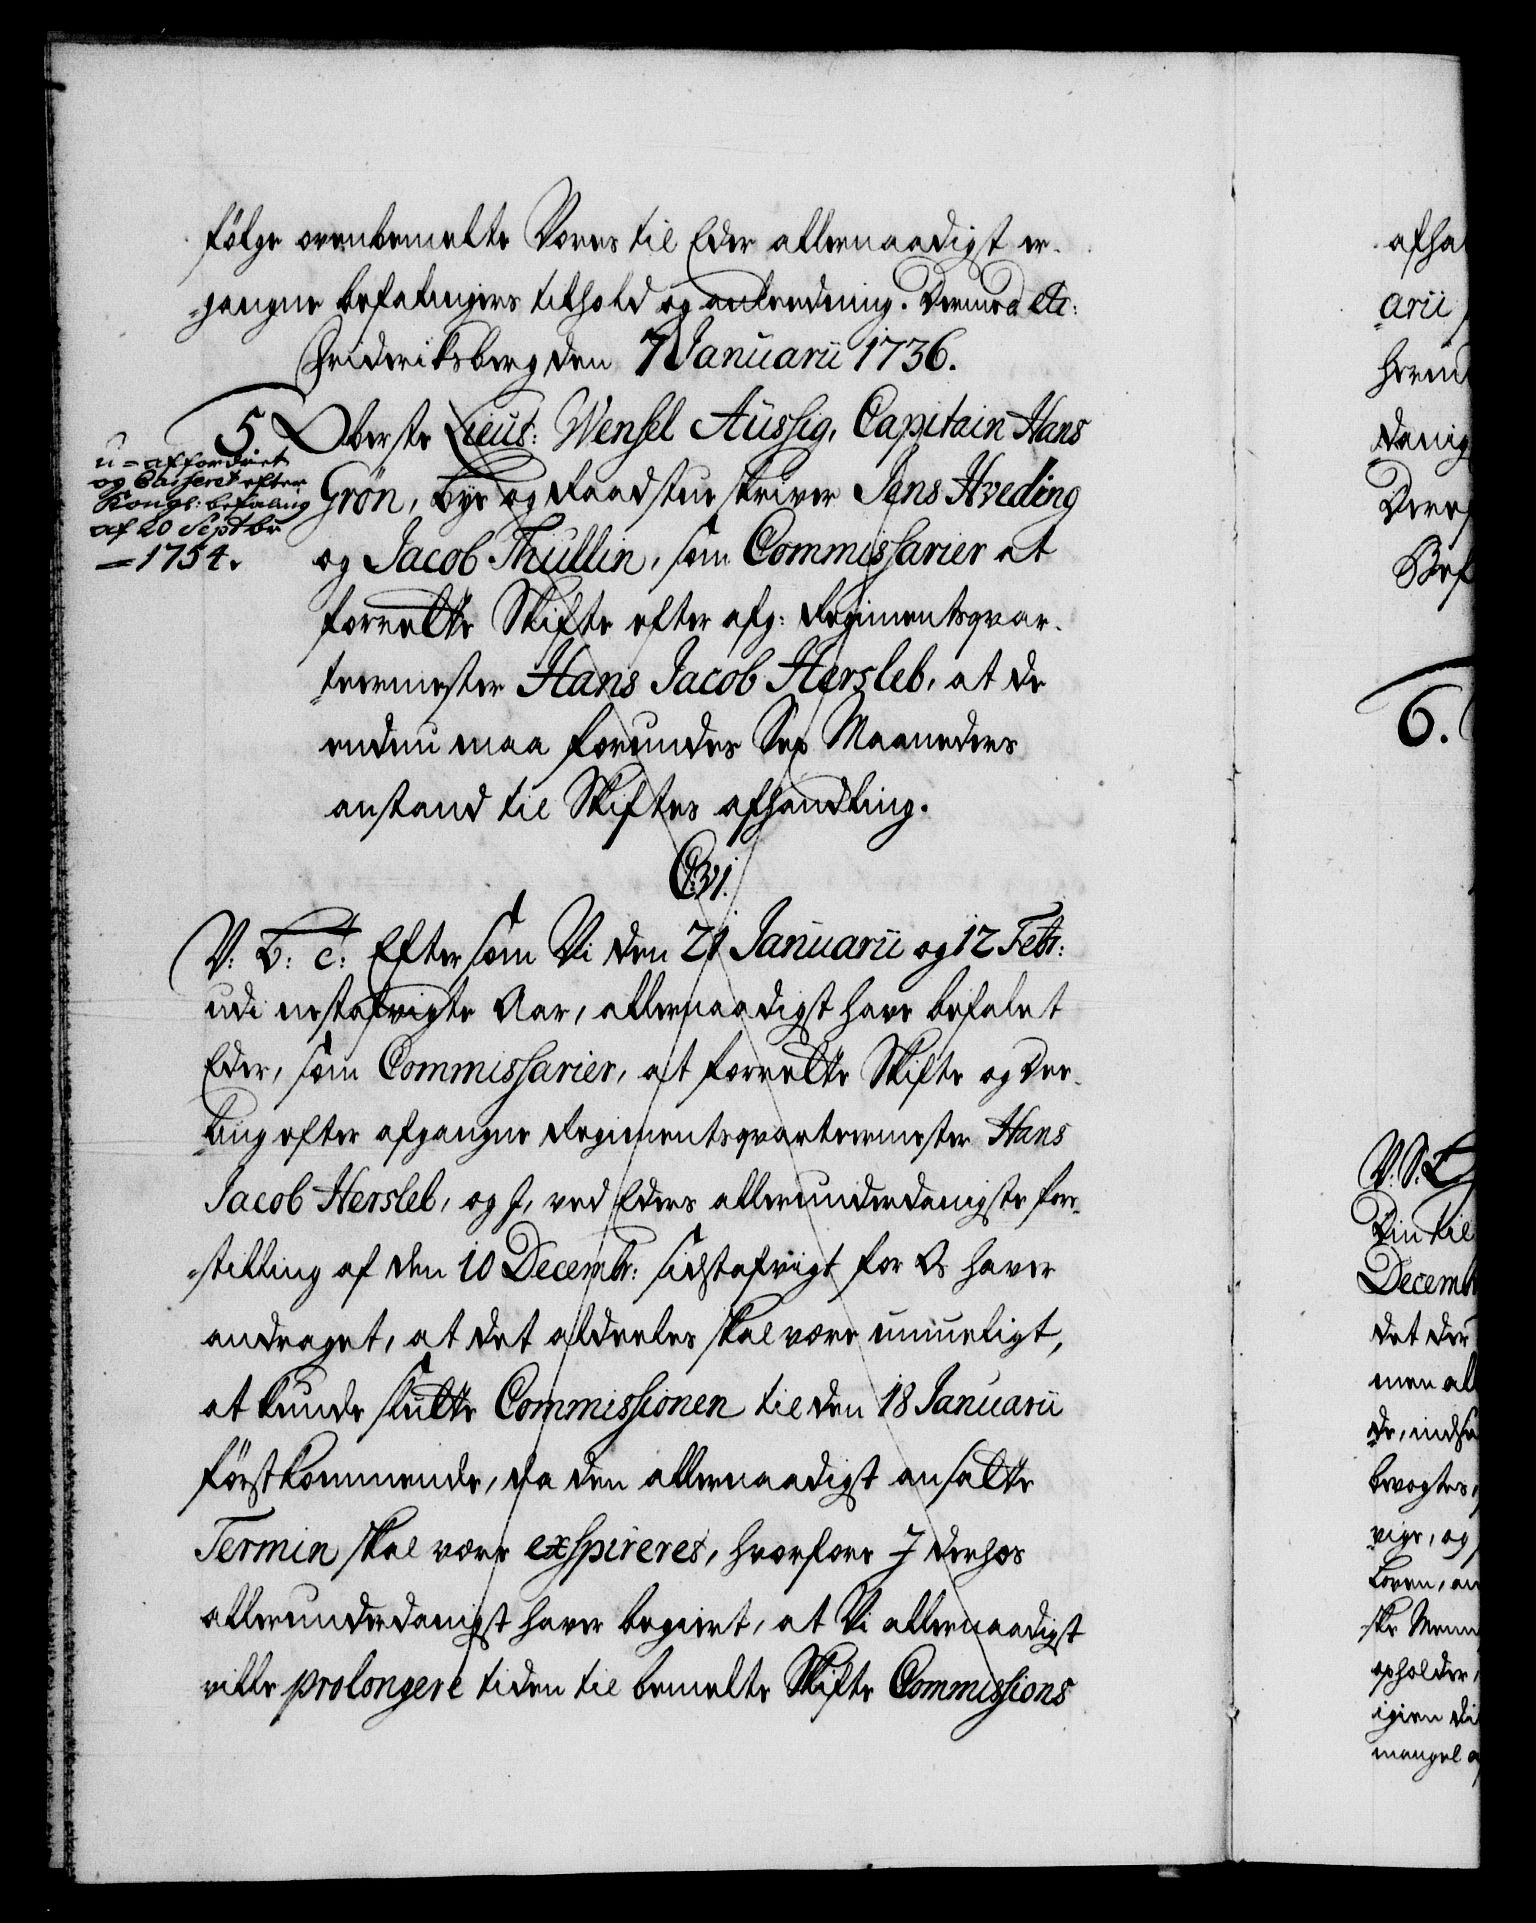 følge ovenbemelte Vores til Eder allernaadigst er-
gangne befalingers tilhold og anledning. Dermed etc:
Friderichsberg den 7 Januarii 1736.
5. Oberste Lieut: Wensel Aussig, Capitain Hans
Grön, Bye og Raadstue skriver Jens Hveding
og Jacob Thullin, som Commissarier at
forrette Skifte efter afg: Regimentsqvar-
teermester Hans Jacob Hersleb, at de
endnu maa forundes Sex Maaneders
anstand til Skiftes afhandling.
u-affordret
og Casseret efter
Kongl: befaling
af 20 Septbr
1754.
C:VI.
V: G: T: Eftersom Vi den 21 Januarii og 12 Febr:
udi nestafvigte Aar, allernaadigst have befalet
Eder, som Commissarier, at forrette Skifte og Dee-
ling efter afgangne Regimentsqvarteermester Hans
Jacob Hersleb, og I, ved Eders allerunderdanigste fore-
stilling af den 10 Decembr: sidstafvigt for Os haver
andraget, at det aldeeles skal være umueligt,
at kunde slutte Commissionen til den 18 Januarii
förstkommende, da den allernaadigst ansatte
Termin skal være exspireret, hvorfore I derhos
allerunderdanigst haver begiert, at Vi allernaadigst
ville prolongere tiden til bemelte Skifte Commissions
arii
6.
Decemb
det der